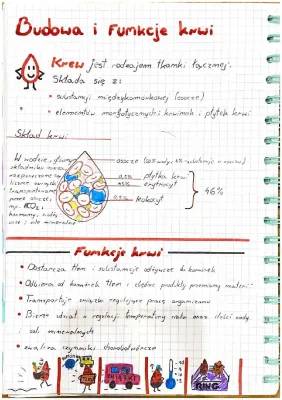 Budowa i Funkcje krwi
Krew jest rodzajem tkanki łącznej.
Składa się z:
• substancji międzykomórkowej (osocze)
• elementów morfotycznych: krwinek i płytek krwi
Skład krwi
W wodzie,
składniku osocza
rozpuszczone są
liczne związki
transportowane
przez osocze;
np. CO2,
hormony,
sole mineralne
osocze
płytka krwi
erytrocyt
leukocyt
46%
Funkcje krwi
• Dostarcza tlen i substancje odżywcze do komórek
• Odbiera od komórek tlen i zbędne produkty przemiany materii
• Transportuje związki regulujące pracę organizmu
• Bierze udział w regulacji temperatury ciała oraz ilości wody
i soli mineralnych
• zwalcza czynniki chorobotwórcze
RING